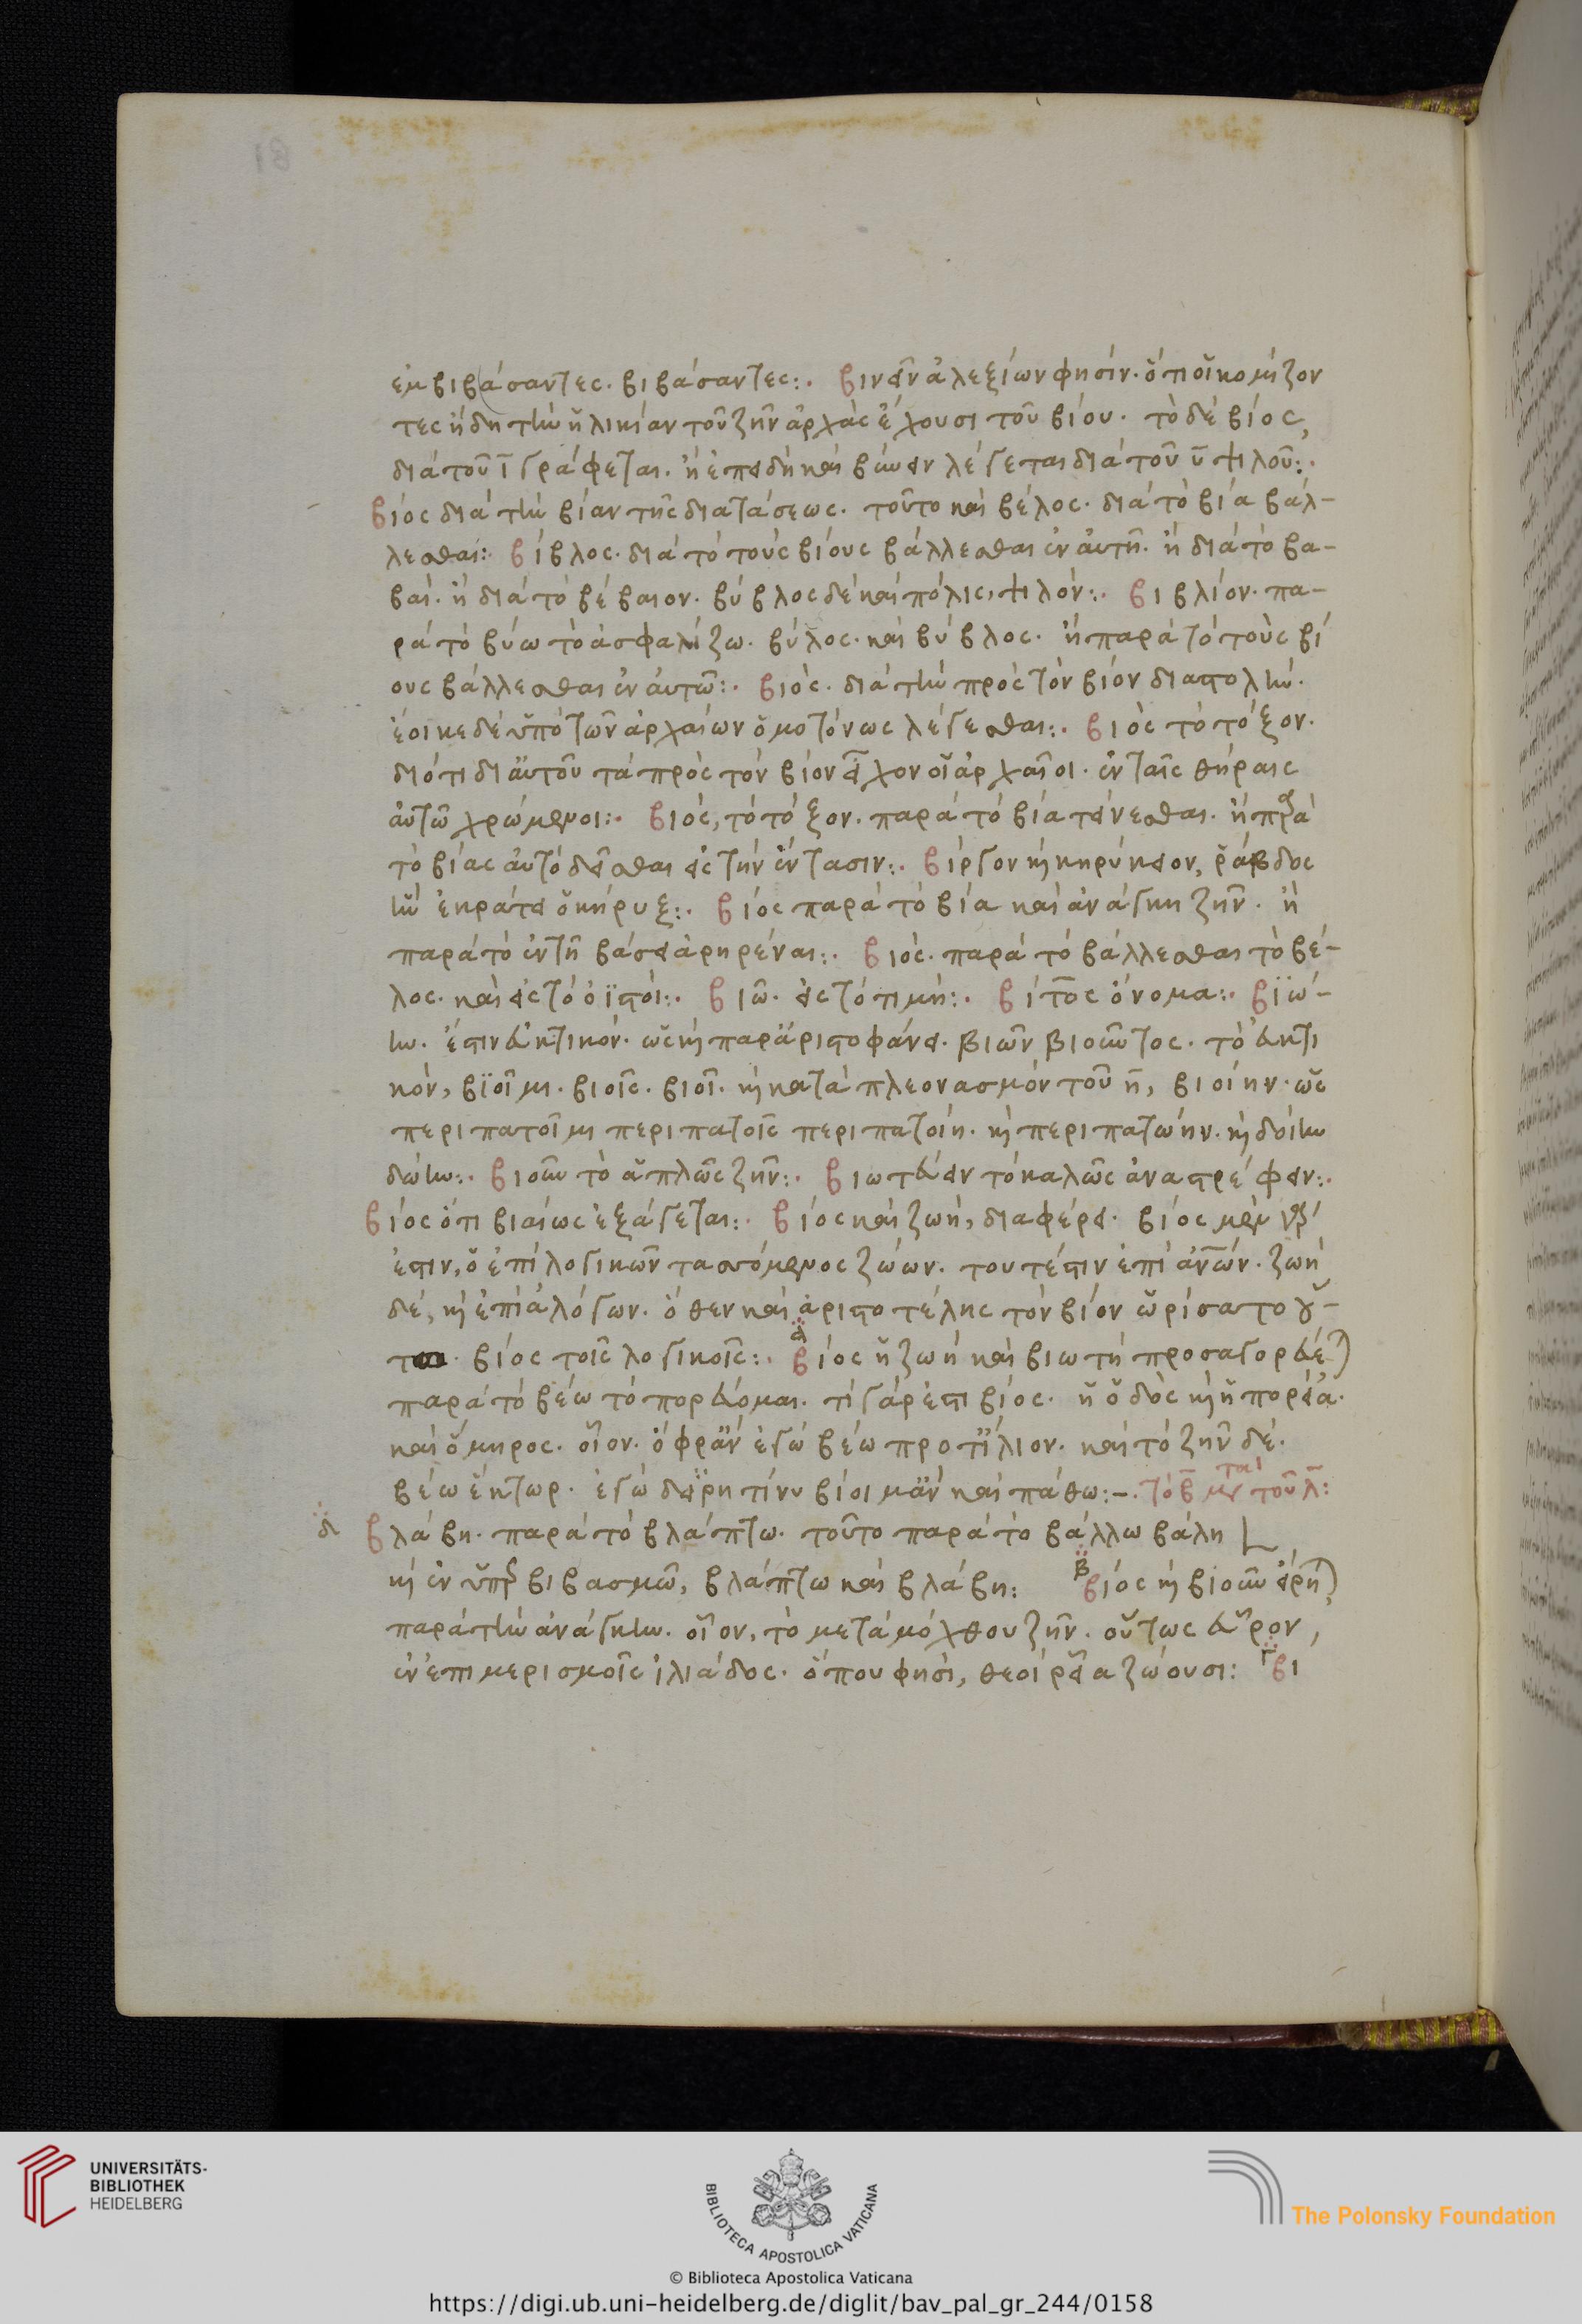 ἐμβιβάσαντες. βιβάσαντες:. βινεῖν ἀλεξίων φησίν. ὅτι οἱ κομίζον
τες ἤδη τὴν ἡλικίαν τοῦ ζῆν ἀρχὰς ἔχουσι τοῦ βίου. τὸ δὲ βίος,
διὰ τοῦ ῑ γράφεται. ἢ ἐπειδὴ καὶ βύειν λέγεται διὰ τοῦ ῡ ψιλοῦ:.
βίος διὰ τὴν βίαν τῆς διατάσεως. τοῦτο καὶ βέλος. διὰ τὸ βία βάλ-
λεσθαι:. βίβλος. διὰ τὸ τοὺς βίους βάλλεσθαι ἐν αὐτῇ. ἢ διὰ τὸ βα-
βαί. ἢ διὰ τὸ βέβαιον. βύβλος δὲ καὶ πόλις, ψιλόν:. βιβλίον. πα-
ρὰ τὸ βύω τὸ ἀσφαλίζω. βύλος. καὶ βύβλος. ἢ παρὰ τὸ τοὺς βί
ους βάλλεσθαι ἐν αὐτῷ:. βιός. διὰ τὴν πρὸς τὸν βίον διαστολήν.
ἔοικε δὲ ὑπὸ τῶν ἀρχαίων ὁμοτόνως λέγεσθαι:. βιὸς τὸ τόξον.
διότι δι αὐτοῦ τὰ πρὸς τὸν βίον εἶχον οἱ ἀρχαῖοι. ἐν ταῖς θήραις
αὐτῷ χρώμενοι:. βιός, τὸ τόξον. παρὰ τὸ βία τείνεσθαι. ἢ παρὰ
τὸ βίας αὐτὸ δεῖσθαι εἰς τὴν ἔντασιν:. βίργον κηρύκειον, ῥάβδος
ἣν ἐκράτει ὁ κήρυξ:. βίος παρὰ τὸ βία καὶ ἀνάγκη ζῆν. ἢ
παρὰ τὸ ἐν τῇ βάσει ἀρηρέναι:. βιός. παρὰ τὸ βάλλεσθαι τὸ βέ-
λος. καὶ εἰς τὸ ὀϊστοί:. βιῶ. εἰς τὸ τιμή:. βίτος ὄνομα:. βϊώ-
ην. ἔστιν εὐκτικόν. ὡς καὶ παρ ἀριστοφάνει. βιῶν βιοῦντος. τὸ εὐκτι
κόν, βϊοῖμι. βιοῖς. βιοῖ. καὶ κατὰ πλεονασμὸν τοῦ η̄, βιοίην. ὡς
περιπατοῖμι περιπατοῖς περιπατοίη. καὶ περιπατώην. καὶ δοίην
δώην:. βιοῦν τὸ ἁπλῶς ζῆν:. βιωτεύειν τὸ καλῶς ἀναστρέφειν:.
βίος ὅτι βιαίως ἐξάγεται:. βίος καὶ ζωή, διαφέρει. βίος μὲν γάρ
ἐστιν, ὁ ἐπὶ λογικῶν τασσόμενος ζώων. τουτέστιν ἐπὶ ἀν̅ων. ζωὴ
δέ, καὶ ἐπὶ ἀλόγων. ὅθεν καὶ ἀριστοτέλης τὸν βίον ὡρίσατο οὕ-
τω. βίος τοῖς λογικοῖς:. α βίος ἡ ζωὴ καὶ βιωτὴ προσαγορεύε)
παρὰ τὸ βέω τὸ πορεύομαι. τί γάρ ἐστι βίος. ἢ ὁδὸς καὶ ἡ πορεία.
καὶ ὅμηρος. οἷον. ὄφρ ἂν ἐγὼ βέω προτὶ ἴλιον. καὶ τὸ ζῆν δέ.
βέω ἕκτωρ. ἐγὼ δειρὴ τίνυ βίοι μὰν καὶ πάθω:-. τὸ β̄ μετὰ τοῦ λ̄:
δ βλάβη. παρὰ τὸ βλάπτω. τοῦτο παρὰ τὸ βάλλω βάλη
καὶ ἐν ὑπερβιβασμῷ, βλάπτω καὶ βλάβη: β βίος καὶ βιοῦν εἴρη)
παρὰ τὴν ἀνάγκην. οἷον, τὸ μετὰ μόχθου ζῆν. οὕτως εὗρον,
ἐν ἐπιμερισμοῖς ἰλιάδος. ὅπου φησί, θεοὶ ῥεῖα ζώουσι: γ βι
UNIVERSITÄTS-
BIBLIOTHEK
HEIDELBERG
BIBLIOTECA APOSTOLICA VATICANA
The Polonsky Foundation
© Biblioteca Apostolica Vaticana
https://digi.ub.uni-heidelberg.de/diglit/bav_pal_gr_244/0158